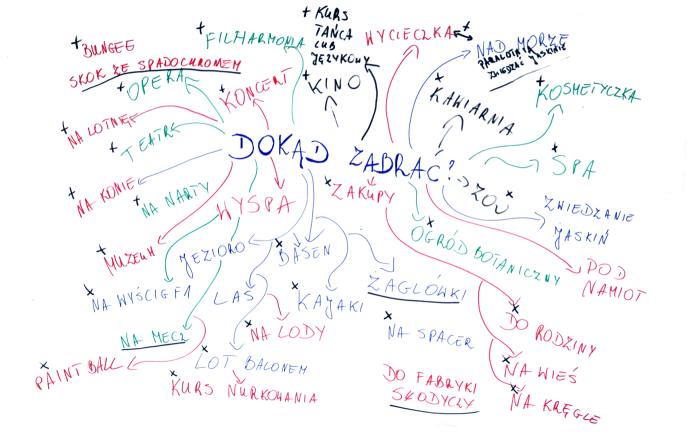 + KURS
TAŃCA
LUB
JĘZYKOWY
+ BUNGEE
SKOK ZE SPADOCHROMEM
+ FILHARMONIA
WYCIECZKA +
NAD MORZE
PARALOTNIA
ZWIEDZAĆ JASKINIE
+ OPERA
+ KONCERT
+ KINO
+ KAWIARNIA
+ KOSMETYCZKA
+ NA LOTNIĘ
+ TEATR
DOKĄD ZABRAĆ?
x SPA
+ NA KONIE
+ NA NARTY
WYSPA
x ZAKUPY
ZOO x
ZWIEDZANIE
JASKIŃ
+ MUZEUM
JEZIORO
x BASEN
x OGRÓD BOTANICZNY
POD
NAMIOT
x NA WYŚCIG F1
LAS
x KAJAKI
ŻAGLÓWKI
x DO RODZINY
NA MECZ
x NA LODY
x NA SPACER
x PAINT BALL
x LOT BALONEM
x NA WIEŚ
x KURS NURKOWANIA
DO FABRYKI
SŁODYCZY
x NA KRĘGLE